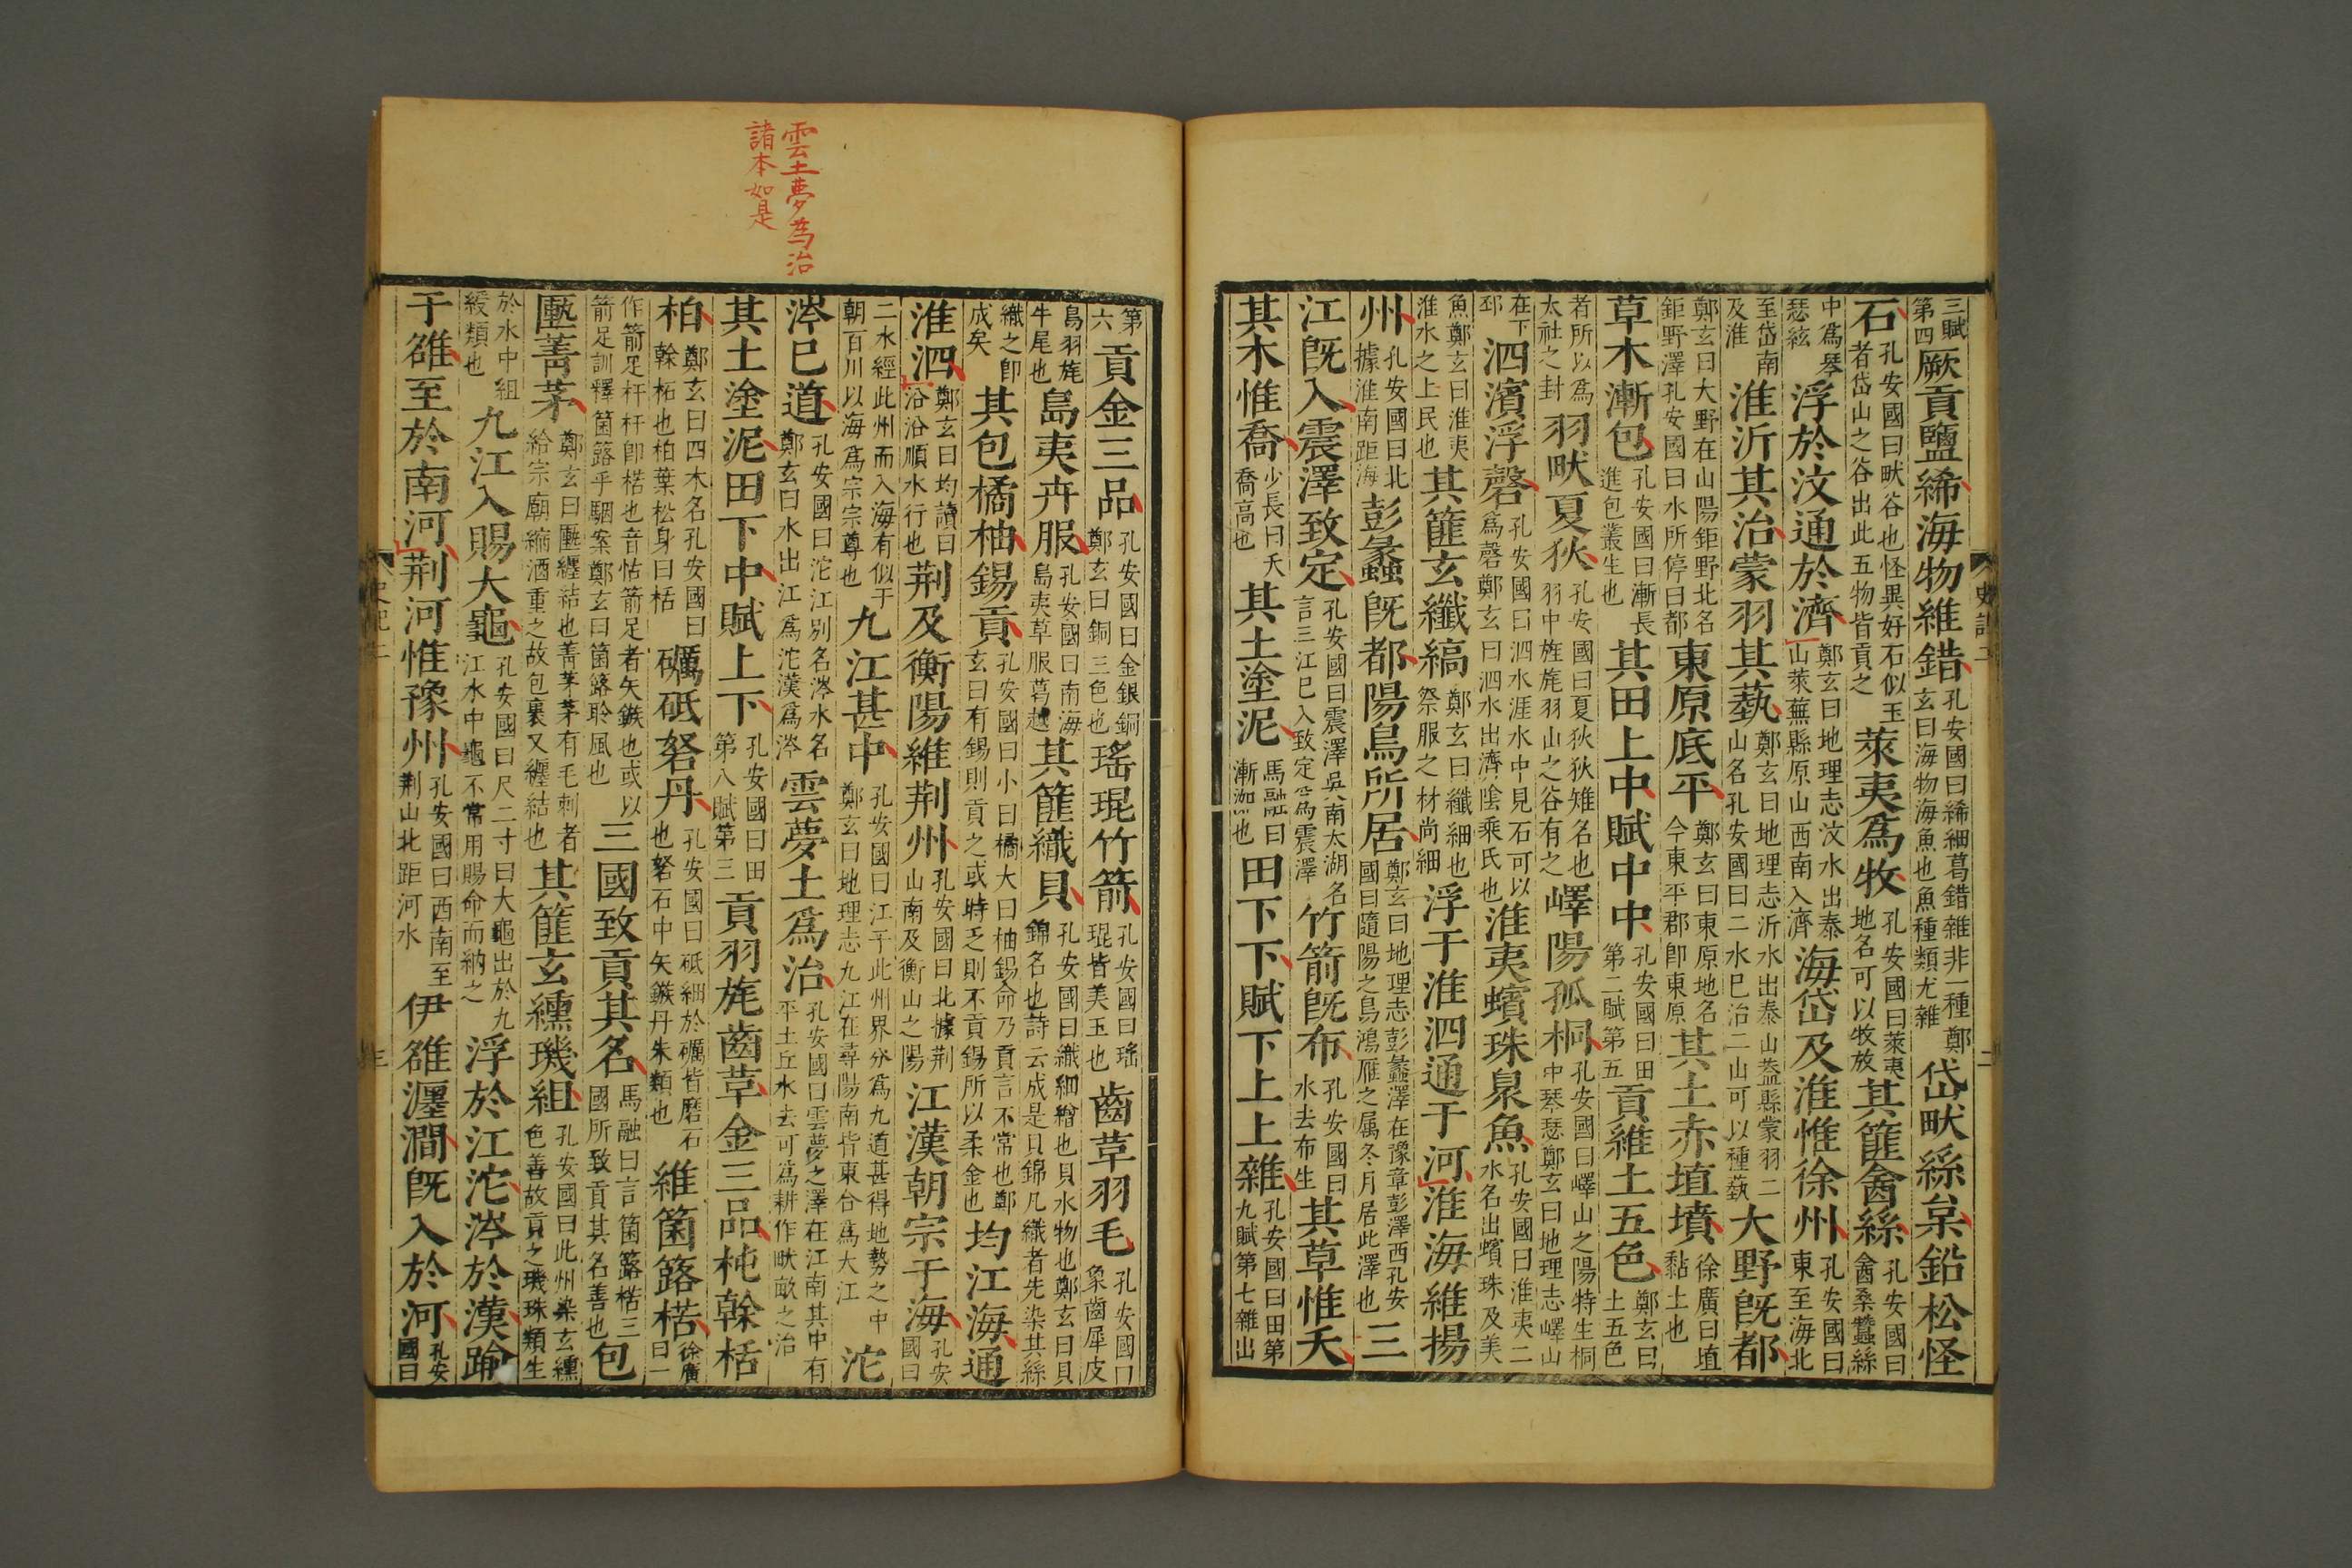 三賦
第四
厥貢鹽絺海物維錯
孔安國曰絺細葛錯雜非一種鄭
玄曰海物海魚也魚種類尤雜
岱畎絲枲鉛松怪
石
孔安國曰畎谷也怪異好石似玉
者岱山之谷出此五物皆貢之
萊夷爲牧
孔安國曰萊夷
地名可以牧放
其篚酓絲
孔安國曰
酓桑蠶絲
中爲琴
瑟絃
浮於汶通於濟
鄭玄曰地理志汶水出泰
山萊蕪縣原山西南入濟
海岱及淮惟徐州
孔安國曰
東至海北
至岱南
及淮
淮沂其治蒙羽其蓺
鄭玄曰地理志沂水出泰山蓋縣蒙羽二
山名孔安國曰二水已治二山可以種蓺
大野旣都
鄭玄曰大野在山陽鉅野北名
鉅野澤孔安國曰水所停曰都
東原底平
鄭玄曰東原地名
今東平郡即東原
其土赤埴墳
徐廣曰埴
黏土也
草木漸包
孔安國曰漸長
進包叢生也
其田上中賦中中
孔安國曰田
第二賦第五
貢維土五色
鄭玄曰
土五色
者所以爲
太社之封
羽畎夏狄
孔安國曰夏狄狄雉名也
羽中旌旄羽山之谷有之
嶧陽孤桐
孔安國曰嶧山之陽特生桐
中琴瑟鄭玄曰地理志嶧山
在下
邳
泗濱浮磬
孔安國曰泗水涯水中見石可以
爲磬鄭玄曰泗水出濟陰乘氏也
淮夷蠙珠臮魚
孔安國曰淮夷二
水名出蠙珠及美
魚鄭玄曰淮夷
淮水之上民也
其篚玄纖縞
鄭玄曰纖細也
祭服之材尚細
浮于淮泗通于河淮海維揚
州
孔安國曰北
據淮南距海
彭蠡旣都陽鳥所居
鄭玄曰地理志彭蠡澤在豫章彭澤西孔安
國曰隨陽之鳥鴻雁之屬冬月居此澤也
三
江旣入震澤致定
孔安國曰震澤吳南太湖名
言三江已入致定爲震澤
竹箭旣布
孔安國曰
水去布生
其草惟夭
其木惟喬
少長曰夭
喬高也
其土塗泥
馬融曰
漸洳也
田下下賦下上上雜
孔安國曰田第
九賦第七雜出
第
六
貢金三品
孔安國曰金銀銅
鄭玄曰銅三色也
瑤琨竹箭
孔安國曰瑤
琨皆美玉也
齒革羽毛
孔安國曰
象齒犀皮
鳥羽旄
牛尾也
島夷卉服
孔安國曰南海
島夷草服葛越
其篚織貝
孔安國曰織細繒也貝水物也鄭玄曰貝
錦名也詩云成是貝錦凡織者先染其絲
織之即
成矣
其包橘柚錫貢
孔安國曰小曰橘大曰柚錫命乃貢言不常也鄭
玄曰有錫則貢之或時乏則不貢錫所以柔金也
均江海通
淮泗
鄭玄曰均讀曰
沿沿順水行也
荆及衡陽維荆州
孔安國曰北據荆
山南及衡山之陽
江漢朝宗于海
孔安
國曰
二水經此州而入海有似于
朝百川以海爲宗宗尊也
九江甚中
孔安國曰江于此州界分爲九道甚得地勢之中
鄭玄曰地理志九江在尋陽南皆東合爲大江
沱
涔已道
孔安國曰沱江別名涔水名
鄭玄曰水出江爲沱漢爲涔
雲夢土爲治
孔安國曰雲夢之澤在江南其中有
平土丘水去可爲耕作畎畝之治
其土塗泥田下中賦上下
孔安國曰田
第八賦第三
貢羽旄齒革金三品杶榦栝
柏
鄭玄曰四木名孔安國曰
榦柘也柏葉松身曰栝
礪砥砮丹
孔安國曰砥細於礪皆磨石
也砮石中矢鏃丹朱類也
維箘簬楛
徐廣
曰一
作箭足杆杆即楛也音怙箭足者矢鏃也或以
箭足訓釋箘簬乎駰案鄭玄曰箘簬聆風也
三國致貢其名
馬融曰言箘簬楛三
國所致貢其名善也
包
匭菁茅
鄭玄曰匭纏結也菁茅茅有毛刺者
給宗廟縮酒重之故包裹又纏結也
其篚玄纁璣組
孔安國曰此州染玄纁
色善故貢之璣珠類生
於水中組
綬類也
九江入賜大龜
孔安國曰尺二寸曰大龜出於九
江水中龜不常用賜命而納之
浮於江沱涔於漢踰
于雒至於南河荆河惟豫州
孔安國曰西南至
荆山北距河水
伊雒瀍澗旣入於河
孔安
國曰
雲土夢爲治
諸本如是
史記二
二
三